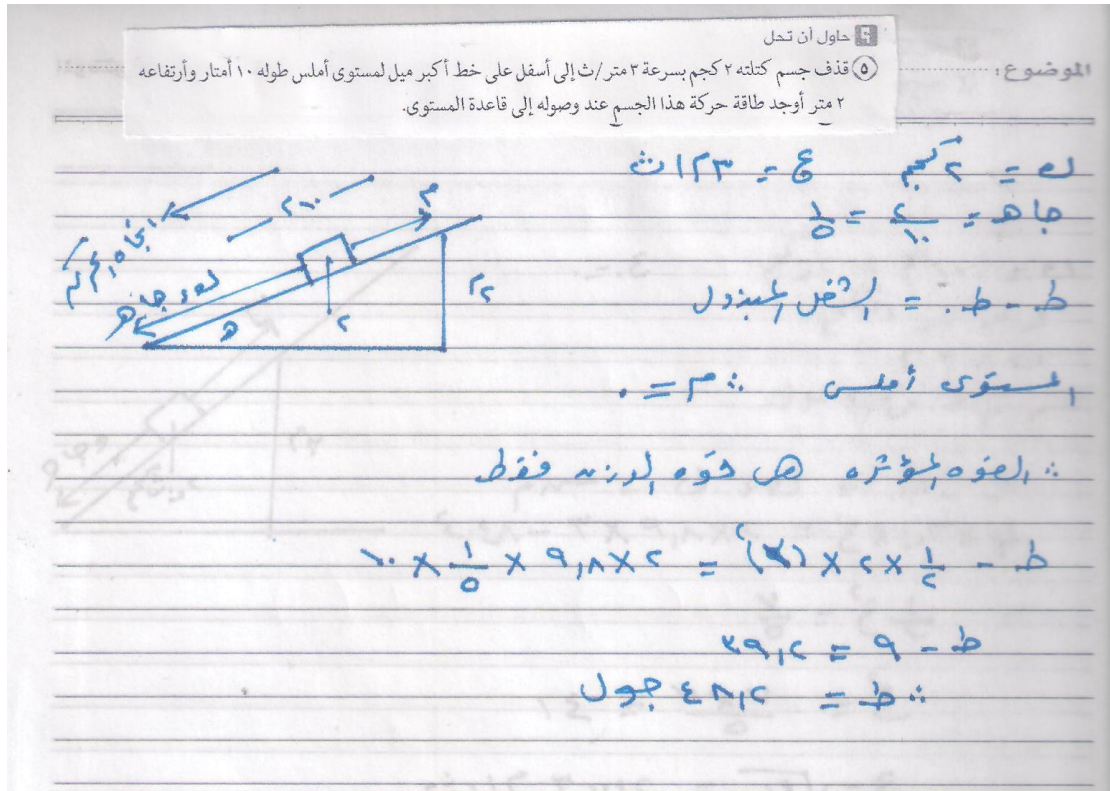 حاول أن تحل
الموضوع :
٥ قذف جسم كتلته ٢ كجم بسرعة ٣ متر/ث إلى أسفل على خط أكبر ميل لمستوى أملس طوله ١٠ أمتار وأرتفاعه
٢ متر أوجد طاقة حركة هذا الجسم عند وصوله إلى قاعدة المستوى.
ك = ٢ كجم ع = ٣ م/ث
جا هـ = ٢/١٠ = ١/٥
ط - ط٠ = الشغل المبذول
المستوى أملس ∴ م = ٠
∴ القوه المؤثره هى قوه الوزن فقط
ط - ١/٢ × ٢ × (٣)٢ = ٢ × ٩,٨ × ١/٥ × ١٠
ط - ٩ = ٣٩,٢
∴ ط = ٤٨,٢ جول
اتجاه
م
١٠ م
٢ م
هـ
٢